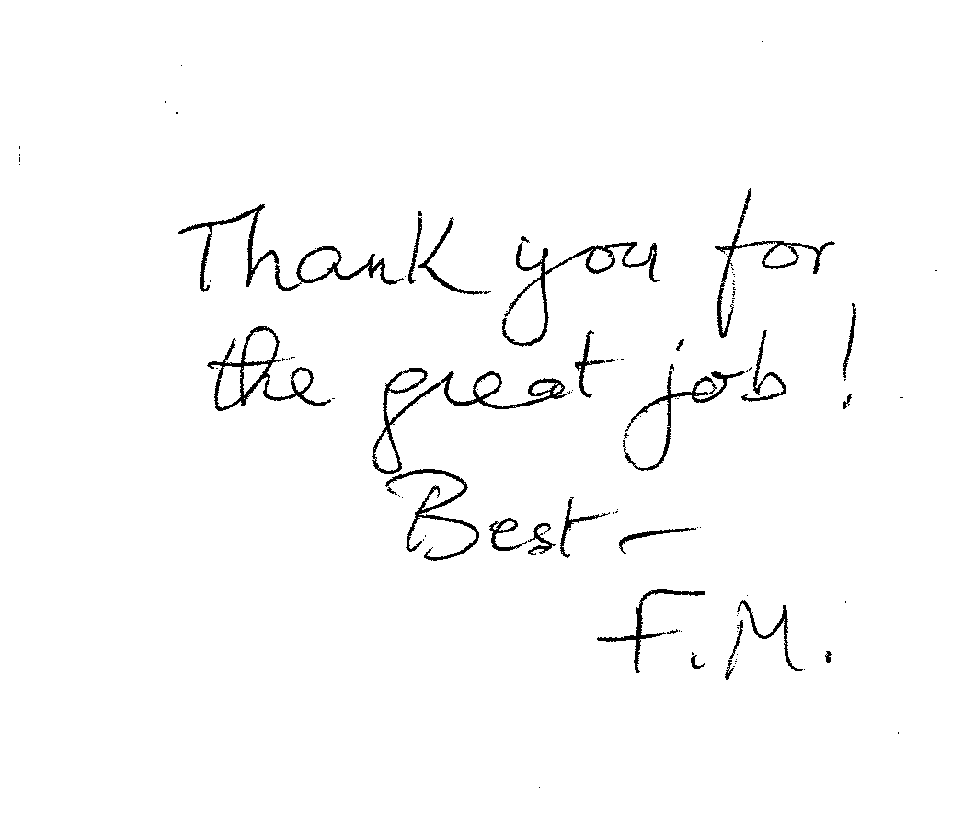 Thank you for
the great job!
Best -
F.M.